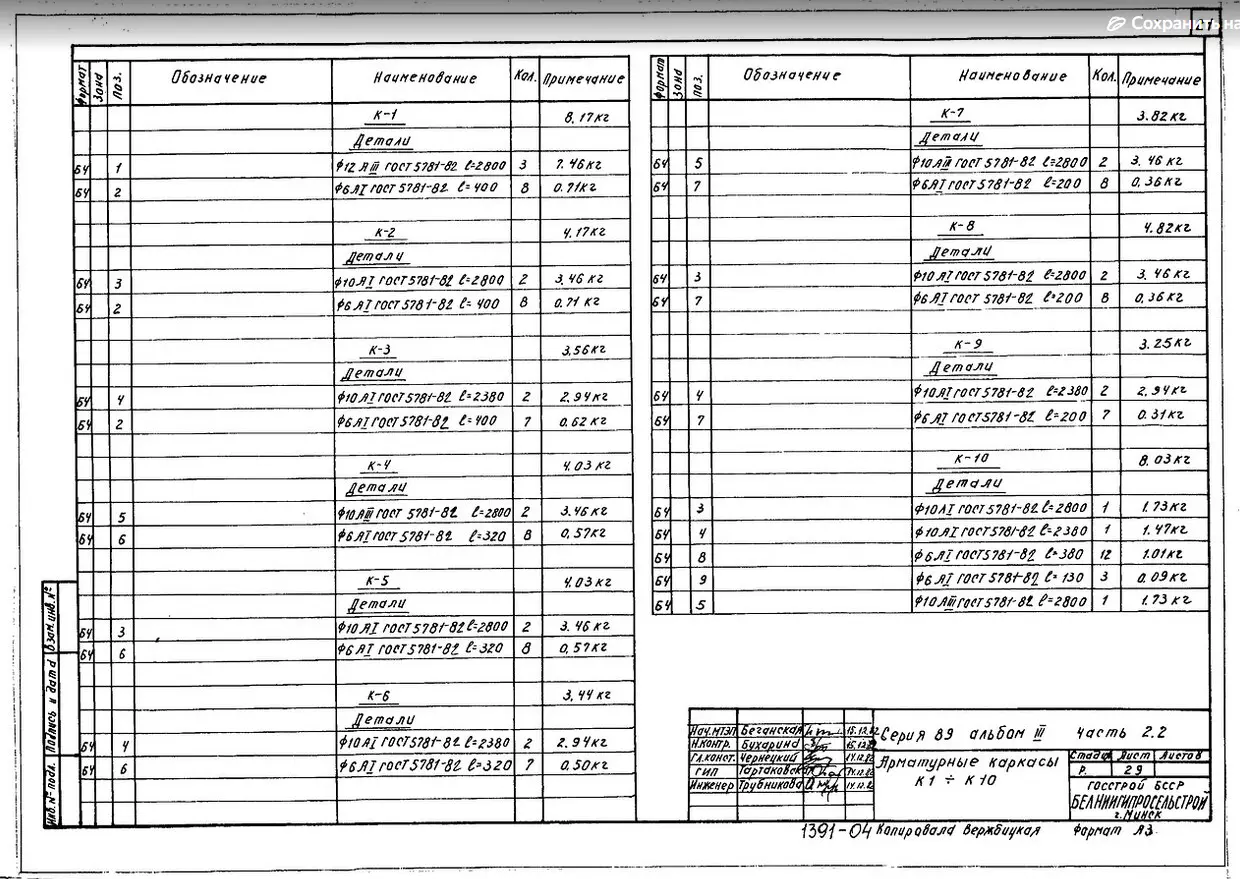 Сохранить на
21
Формат Зона Поз. Обозначение Наименование Кол. Примечание
К-1 8,17кг
Детали
Б4 1 Ф12 АIII ГОСТ 5781-82 ℓ=2800 3 7.46кг
Б4 2 Ф6АI ГОСТ 5781-82 ℓ=400 8 0.71кг
К-2 4.17кг
Детали
Б4 3 Ф10АI ГОСТ5781-82 ℓ=2800 2 3.46кг
Б4 2 Ф6АI ГОСТ 5781-82 ℓ=400 8 0.71 кг
К-3 3.56кг
Детали
Б4 4 Ф10АI ГОСТ5781-82 ℓ=2380 2 2.94кг
Б4 2 Ф6АI ГОСТ 5781-82 ℓ=400 7 0.62кг
К-4 4.03 кг
Детали
Б4 5 Ф10АIII ГОСТ5781-82 ℓ=2800 2 3.46кг
Б4 6 Ф6АI ГОСТ 5781-82 ℓ=320 8 0,57кг
К-5 4.03кг
Детали
Б4 3 Ф10АI ГОСТ5781-82 ℓ=2800 2 3.46кг
Б4 6 Ф6АI ГОСТ 5781-82 ℓ=320 8 0,57кг
К-6 3,44кг
Детали
Б4 4 Ф10АI ГОСТ5781-82 ℓ=2380 2 2.94кг
Б4 6 Ф6АI ГОСТ 5781-82 ℓ=320 7 0.50кг
Формат Зона Поз. Обозначение Наименование Кол. Примечание
К-7 3.82кг
Детали
Б4 5 Ф10АIII ГОСТ 5781-82 ℓ=2800 2 3.46 кг
Б4 7 Ф6АI ГОСТ 5781-82 ℓ=200 8 0,36кг
К-8 4.82кг
Детали
Б4 3 Ф10АI ГОСТ 5781-82 ℓ=2800 2 3.46кг
Б4 7 Ф6АI ГОСТ 5781-82 ℓ=200 8 0,36кг
К-9 3.25кг
Детали
Б4 4 Ф10АI ГОСТ 5781-82 ℓ=2380 2 2,94кг
Б4 7 Ф6АI ГОСТ 5781-82 ℓ=200 7 0.31кг
К-10 8.03кг
Детали
Б4 3 Ф10АI ГОСТ5781-82 ℓ=2800 1 1.73кг
Б4 4 Ф10АI ГОСТ5781-82 ℓ=2380 1 1.47кг
Б4 8 Ф6АI ГОСТ5781-82 ℓ=380 12 1.01кг
Б4 9 Ф6АI ГОСТ 5781-82 ℓ=130 3 0.09кг
Б4 5 Ф10АIII ГОСТ5781-82 ℓ=2800 1 1.73кг
Взам.инв.№
Подпись и дата
Инв.№ подл.
Нач.МТЭП Беганская
Н.контр. Бухарина
Гл.конст. Чернецкий
ГИП Тартаковск
Инженер Трубникова
Серия 89 альбом III часть 2.2
Арматурные каркасы
К1 ÷ К10
Стадия Лист Листов
Р. 29
ГОССТРОЙ БССР
БЕЛНИИГИПРОСЕЛЬСТРОЙ
г.Минск
1391-04 Копировала Вержбицкая Формат А3